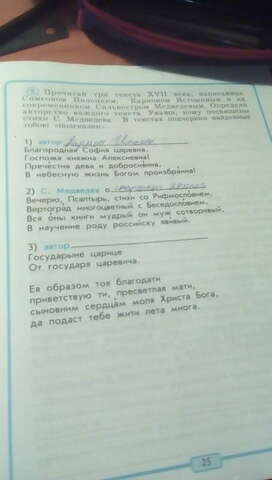 5. Прочитай три текста XVII века, написанные
Симеоном Полоцким, Карионом Истоминым и их
современником Сильвестром Медведевым. Определи
авторство каждого текста. Укажи, кому посвящены
стихи С. Медведева. В текстах подчеркни найденные
тобою «подсказки».
1) автор Карион Истомин
Благородная София царевна,
Госпожа княжна Алексиевна!
Пречестна дева и добросиянна,
В небесную жизнь Богом произбранна!
2) С. Медведев о
Вечерю, Псалтырь, стихи со Рифмословием,
Вертоград многоцветный с Беседословием.
Вся оны книги мудрый он муж сотворивый,
В научение роду российску явивый.
3) автор
Государыне царице
От государя царевича.
Ея образом тоя благодати
приветствую ти, пресветлая мати,
сыновним сердцам моля Христа Бога,
да подаст тебе жити лета многа.
25